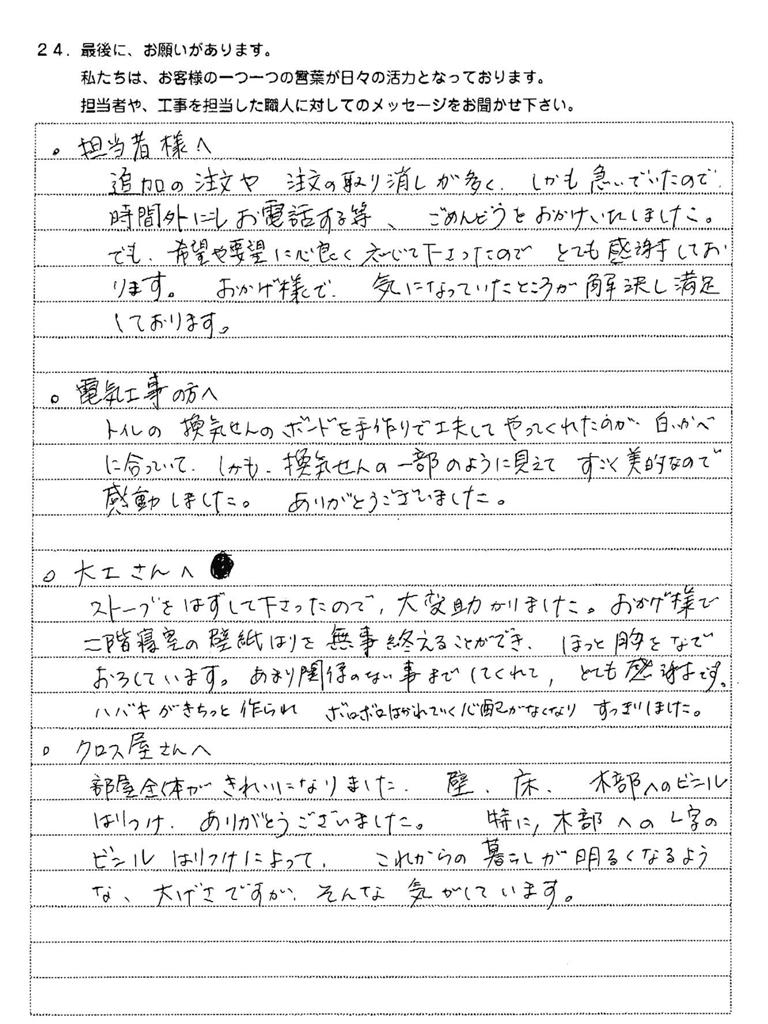 24．最後に、お願いがあります。
私たちは、お客様の一つ一つの言葉が日々の活力となっております。
担当者や、工事を担当した職人に対してのメッセージをお聞かせ下さい。
。担当者様へ
追加の注文や 注文の取り消しが多く、しかも急いでいたので、
時間外にもお電話する等、ごめんどうをおかけいたしました。
でも、希望や要望に心良く応じて下さったので とても感謝してお
ります。 おかげ様で、気になっていたところが解決し満足
しております。
。電気工事の方へ
トイレの 換気せんのボンドを手作りで工夫して やってくれたのが、白いかべ
に合っていて、しかも、換気せんの一部のように見えて すごく美的なので
感動しました。 ありがとうございました。
。大工さんへ
ストーブをはずして下さったので、大変助かりました。おかげ様で
二階寝室の壁紙はりを無事終えることができ、ほっと胸をなで
おろしています。あまり関係のない事までしてくれて、とても感謝です。
ハバキがきちっと作られ ボロボロはがれていく心配がなくなり すっきりしました。
。クロス屋さんへ
部屋全体が きれいになりました。 壁、床、 木部へのビニル
はりつけ、ありがとうございました。 特に、木部へのL字の
ビニル はりつけによって、 これからの暮らしが明るくなるよう
な、大げさですが、そんな気がしています。